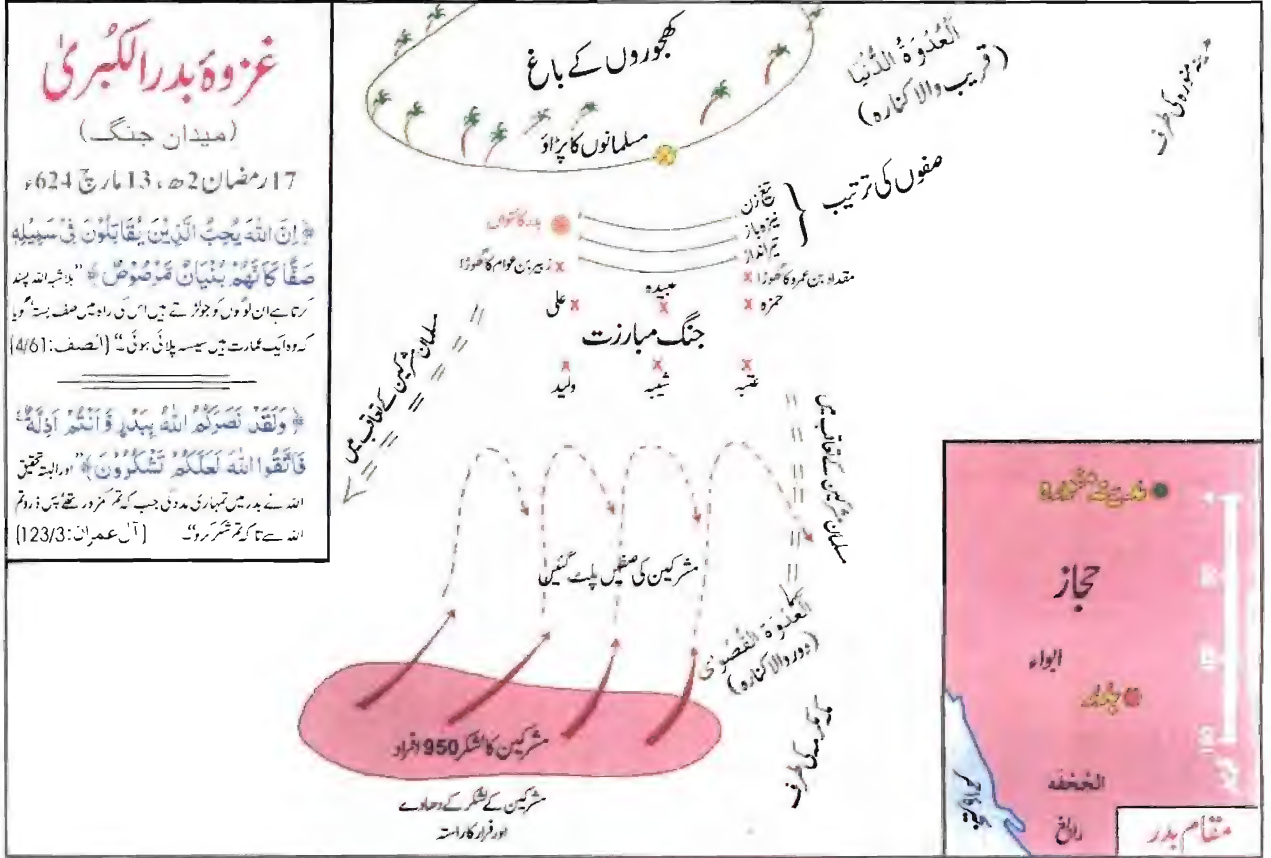 غزوۂ بدر الکبریٰ
(میدان جنگ)
17 رمضان 2ھ، 13 مارچ 624ء
﴿اِنَّ اللّٰهَ يُحِبُّ الَّذِيْنَ يُقَاتِلُوْنَ فِيْ سَبِيْلِهٖ
صَفًّا كَاَنَّهُمْ بُنْيَانٌ مَّرْصُوْصٌ﴾ ”بلاشبہ اللہ پسند
کرتا ہے ان لوگوں کو جو لڑتے ہیں اس کی راہ میں صف بستہ گویا
کہ وہ ایک عمارت ہیں سیسہ پلائی ہوئی۔“ (الصف: 4/61)
﴿وَلَقَدْ نَصَرَكُمُ اللّٰهُ بِبَدْرٍ وَّاَنْتُمْ اَذِلَّةٌ ۚ
فَاتَّقُوا اللّٰهَ لَعَلَّكُمْ تَشْكُرُوْنَ﴾ ”اور البتہ تحقیق
اللہ نے بدر میں تمہاری مدد کی جب کہ تم کمزور تھے پس ڈرو تم
اللہ سے تا کہ تم شکر کرو۔“ (آل عمران: 123/3)
کھجوروں کے باغ
مسلمانوں کا پڑاؤ
اَلْعُدْوَةُ الدُّنْيَا
(قریب والا کنارہ)
مدینہ منورہ کی طرف
صفوں کی ترتیب
تیغ زن
نیزہ باز
تیر انداز
بدر کا کنواں
زبیر بن عوام کا گھوڑا
مقداد بن عمرو کا گھوڑا
حمزہ
عبیدہ
علی
جنگ مبارزت
عتبہ
شیبہ
ولید
مسلمان مشرکین کے تعاقب میں
مسلمان مشرکین کے تعاقب میں
مشرکین کی صفیں پلٹ گئیں
العُدْوَة القُصْوٰى
(دور والا کنارہ)
مکہ مکرمہ کی طرف
مشرکین کا لشکر 950 افراد
مشرکین کے لشکر کے دھاوے
اور فرار کا راستہ
مدینہ منورہ
حجاز
ابواء
بدر
الجُحْفَه
رابغ
مقام بدر